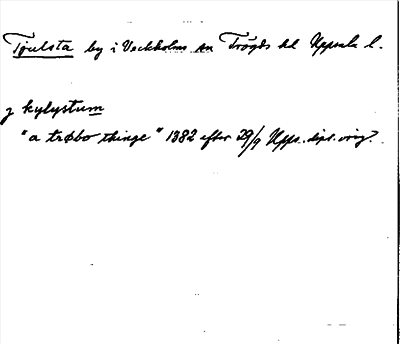 Tjulsta by i Veckholms sn Trögds hd Uppsala l.
j kylystum
"a trøbo thinge" 1382 efter 29/9 Upps. dipl. orig.